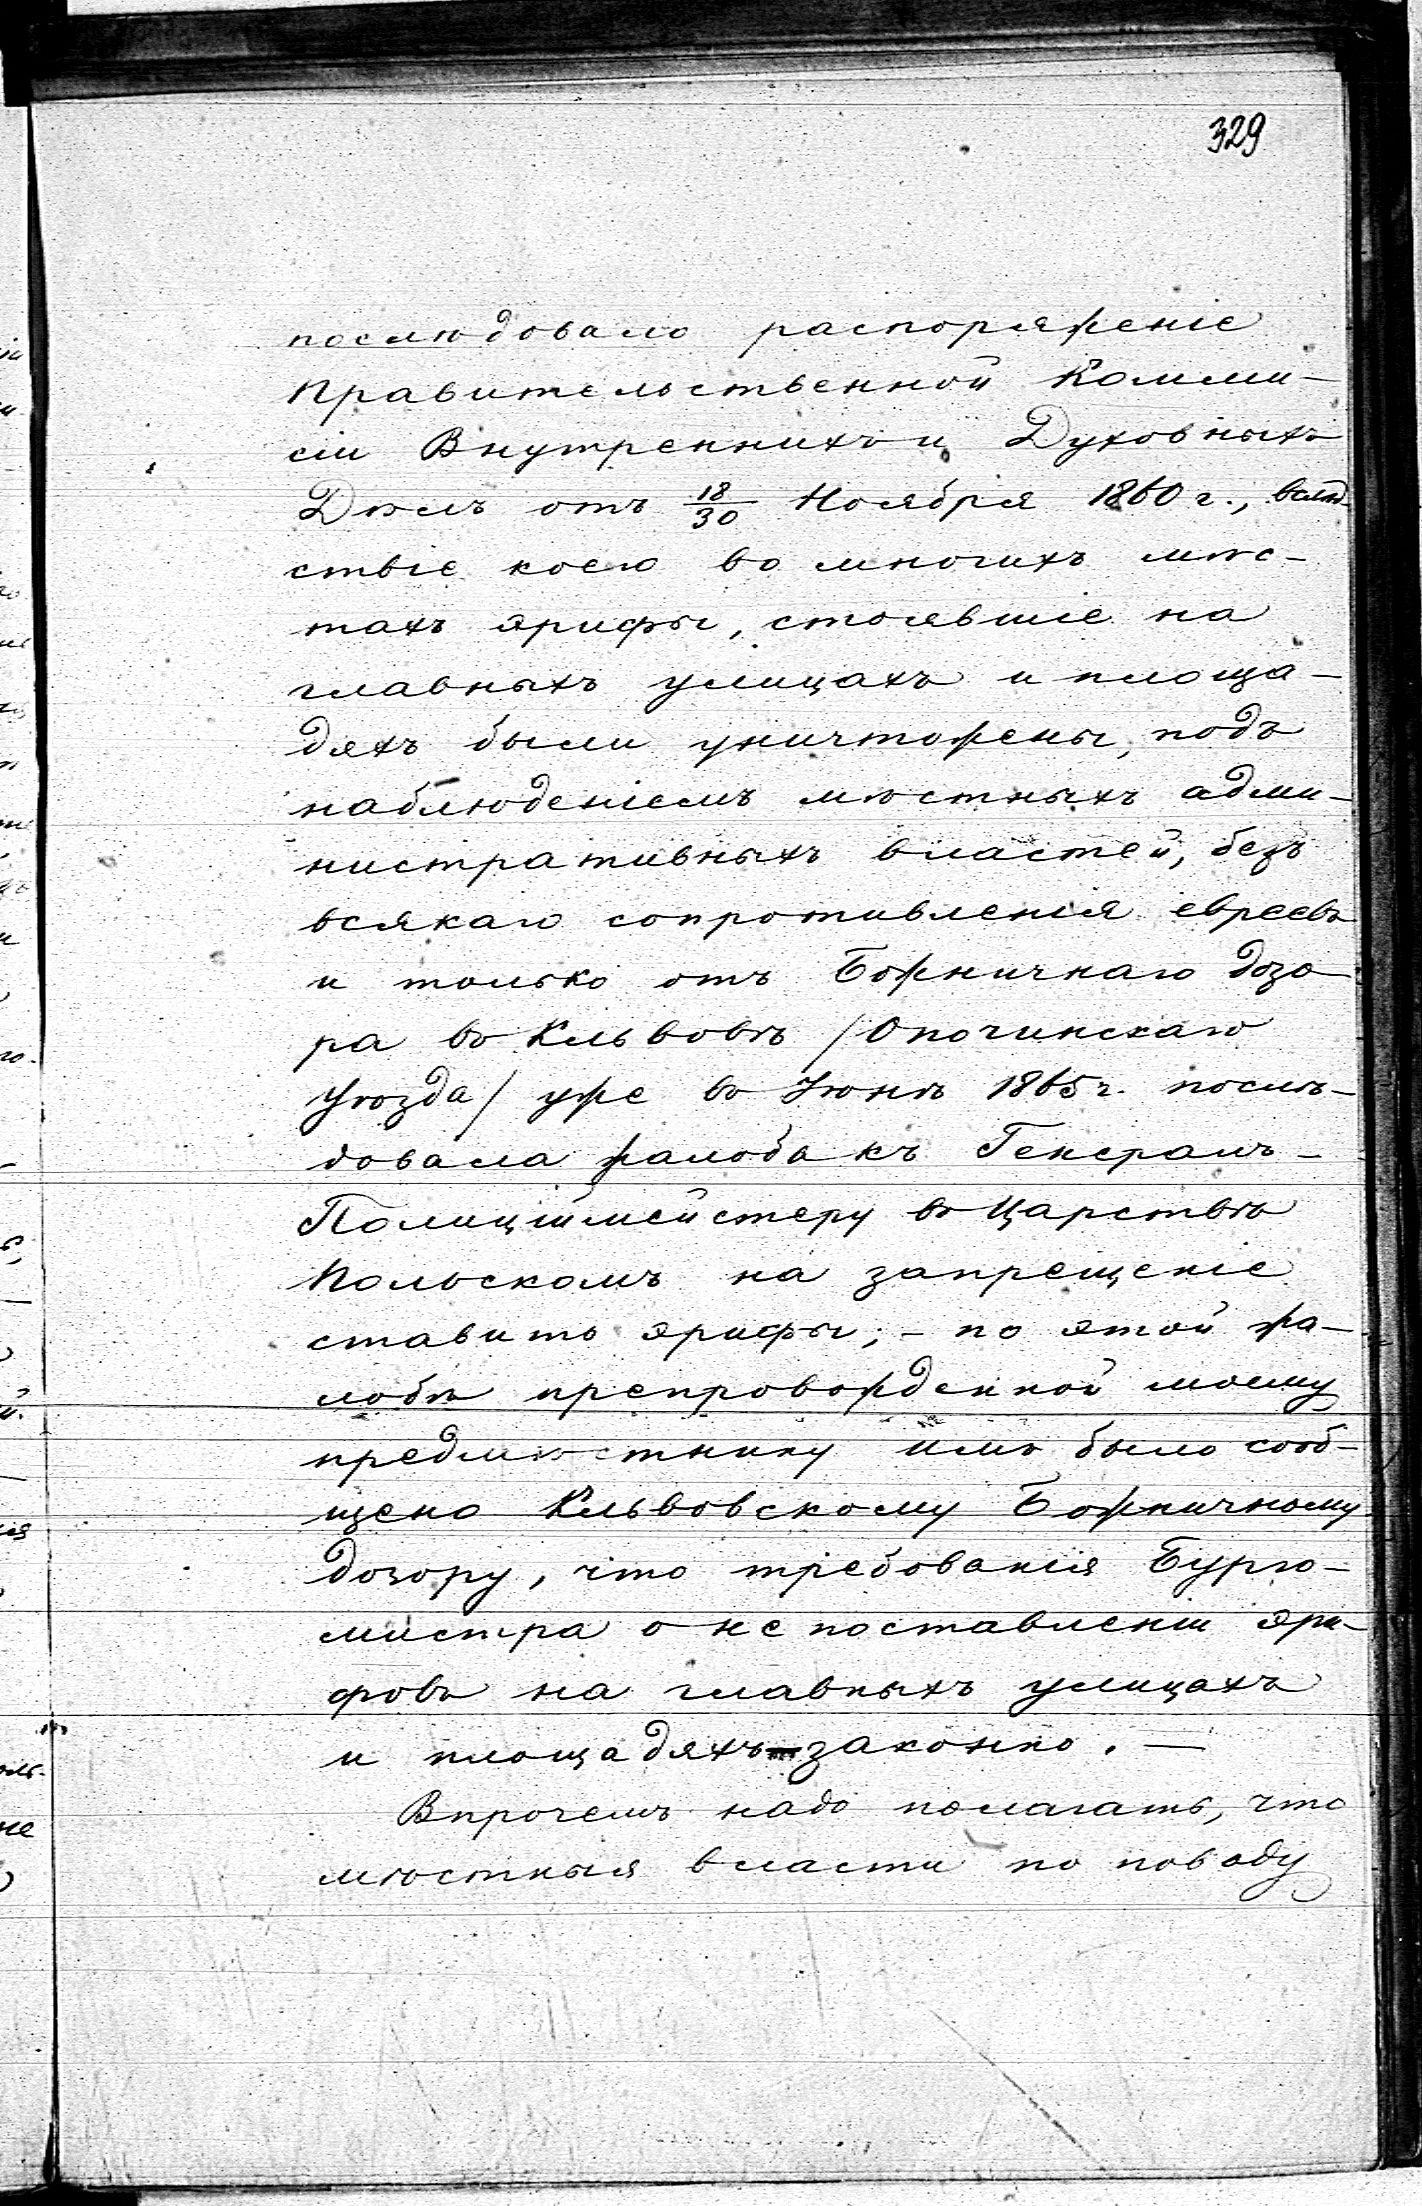 329
послѣдовало распоряженіе
Правительственной Комми-
сіи Внутреннихъ и Духовныхъ
Дѣлъ отъ 18/30 Ноября 1860 г., вслѣд-
ствіе коего во многихъ мѣс-
тахъ эрифы, стоявшіе на
главныхъ улицахъ и площа-
дяхъ были уничтожены, подъ
наблюденіемъ мѣстныхъ адми-
нистративныхъ властей, безъ
всякаго сопротивленія евреевъ
и только отъ Божничнаго дозо
ра въ Кльвовѣ /Опочинскаго
Уѣзда/ уже въ Іюнѣ 1865 г. послѣ-
довала жалоба къ Генералъ-
Полиціймейстеру въ Царствѣ
Польскомъ на запрещеніе
ставить эрифы; - по этой жа-
лобѣ препровожденной моему
предмѣстнику имъ было сооб-
щено Кльвовскому Божничному
дозору, что требованія Бурго-
мистра о не поставленіи эри-
фовъ на главныхъ улицахъ
и площадяхъ законно. —
Впрочемъ надо полагать, что
мѣстныя власти по поводу